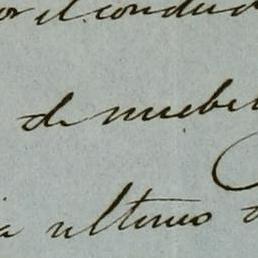 or el conduc
de mueble
a ultimo d